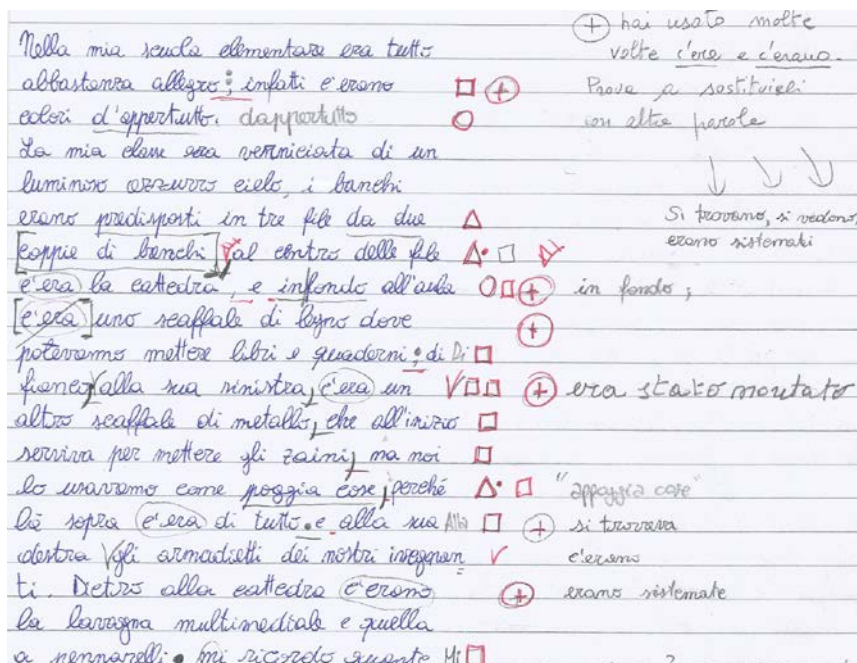 Nella mia scuola elementare era tutto
abbastanza allegro; infatti c'erano
colori d'appertutto. dappertutto
La mia classe era verniciata di un
luminoso azzurro cielo, i banchi
erano predisposti in tre file da due
[coppie di banchi] al centro delle file
c'era la cattedra, e infondo all'aula
[c'era] uno scaffale di legno dove
potevamo mettere libri e quaderni; di Di
fianco, alla sua sinistra, c'era un
altro scaffale di metallo, che all'inizio
serviva per mettere gli zaini, ma noi
lo usavamo come poggia cose, perché
là sopra c'era di tutto. e alla sua Alla
destra gli armadietti dei nostri insegnan
ti. Dietro alla cattedra c'erano
la lavagna multimediale e quella
a pennarelli. mi ricordo quante Mi
+ hai usato molte
volte c'era e c'erano.
Prova a sostituirli
con altre parole
Si trovano, si vedono,
erano sistemati
in fondo;
era stato montato
"appoggia cose"
si trovava
c'erano
erano sistemate